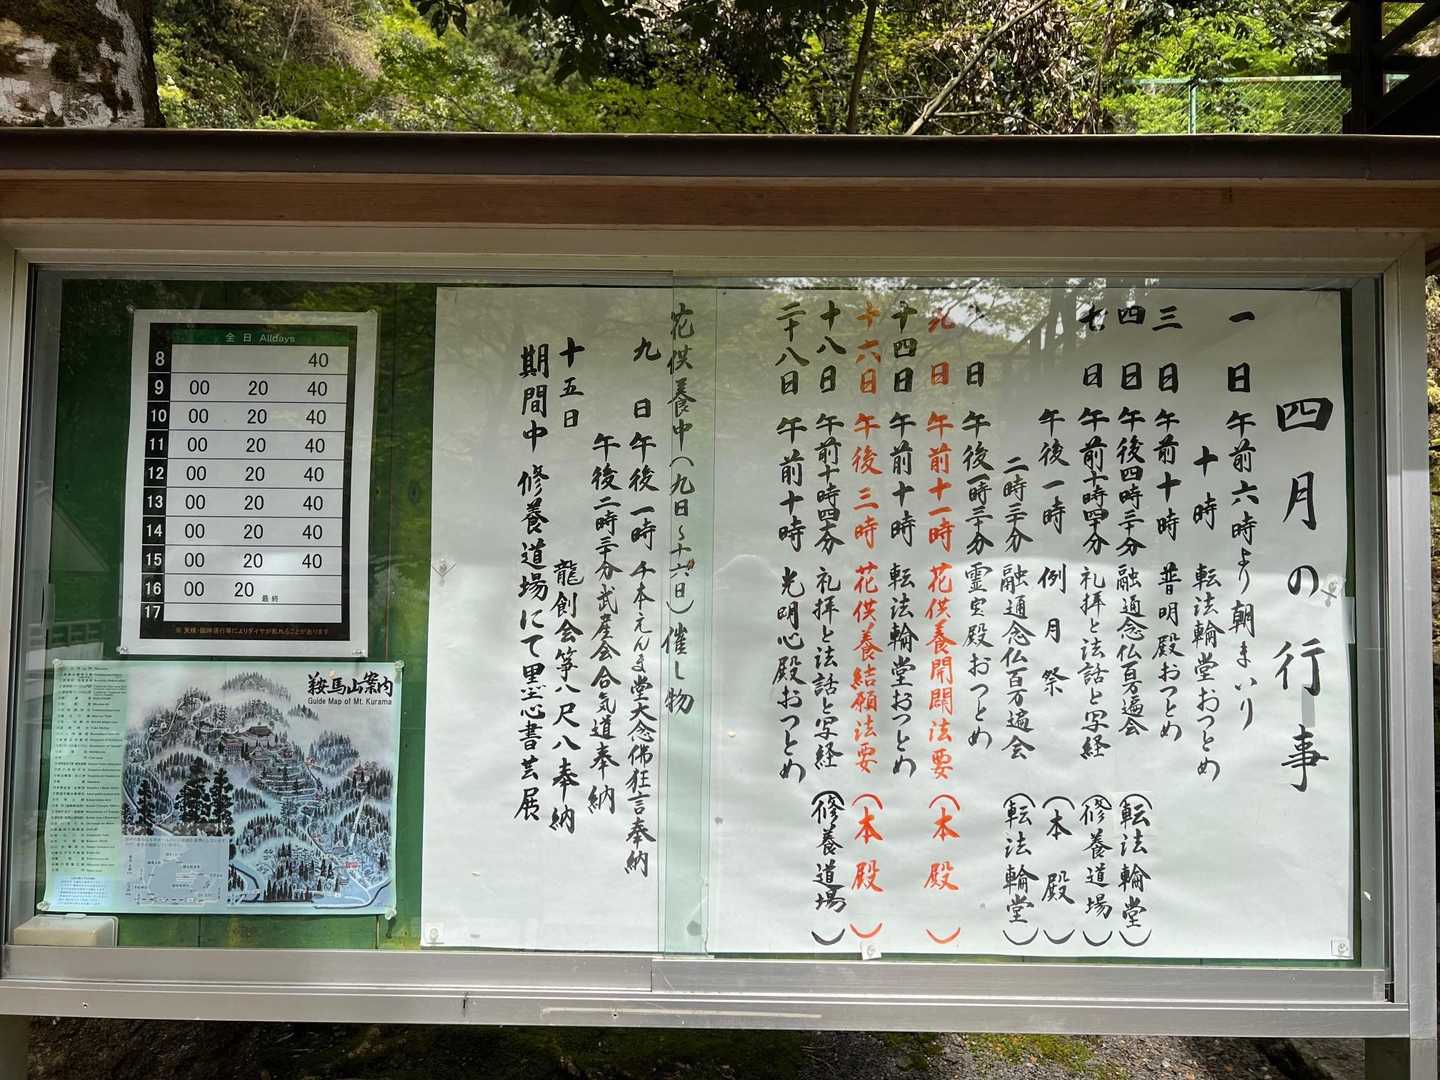 四月の行事
一日 午前六時より朝まいり
十時 転法輪堂おつとめ
三日 午前十時 普明殿おつとめ
四日 午後四時三十分 融通念仏百万遍会 (転法輪堂)
七日 午前十時四十分 礼拝と法話と写経 (修養道場)
午後一時 例月祭 (本殿)
二時三十分 融通念仏百万遍会 (転法輪堂)
日 午後一時三十分 霊宝殿おつとめ
九日 午前十一時 花供養開闢法要 (本殿)
十四日 午前十時 転法輪堂おつとめ
十六日 午後三時 花供養結願法要 (本殿)
十八日 午前十時四十分 礼拝と法話と写経 (修養道場)
二十八日 午前十時 光明心殿おつとめ
花供養中(九日〜十六日)催し物
九日 午後一時 千本えんま堂大念佛狂言奉納
午後二時三十分 武産会合気道奉納
十五日 龍創会箏八尺八奉納
期間中 修養道場にて墨心書芸展
全日 Alldays
8 40
9 00 20 40
10 00 20 40
11 00 20 40
12 00 20 40
13 00 20 40
14 00 20 40
15 00 20 40
16 00 20 最終
17
※ 天候・臨時運行等によりダイヤが乱れることがあります
鞍馬山案内
Guide Map of Mt. Kurama